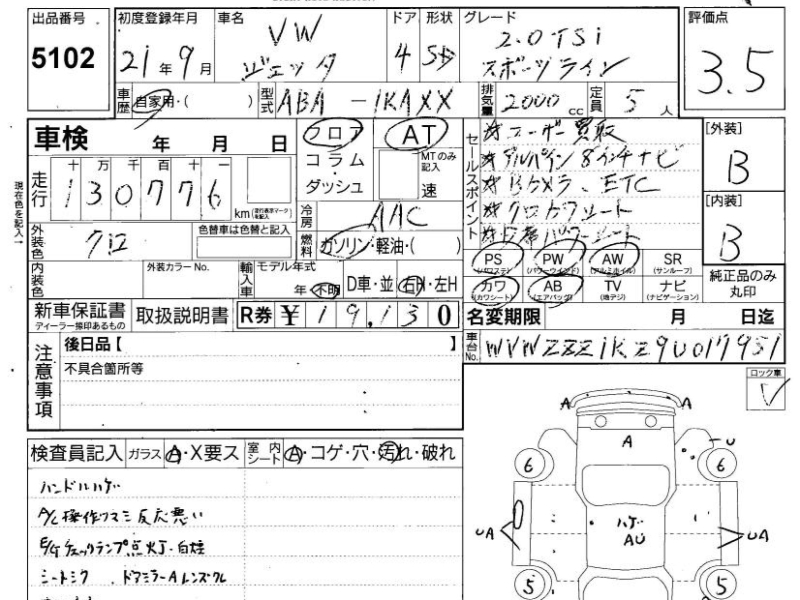 出品番号
5102
初度登録年月
21年9月
車名
VW
ジェッタ
ドア
4
形状
SD
グレード
2.0TSi
スポーツライン
評価点
3.5
車歴
自家用・( )
型式
ABA-1KAXX
排気量
2000cc
定員
5人
車検 年 月 日
フロア
コラム・
ダッシュ
AT
MTのみ記入
速
セールスポイント
☆ユーザー買取
☆アルパイン8インチナビ
☆Bカメラ、ETC
[外装]
B
[内装]
B
走行
十 万 千 百 十 一
130776
km
現在色を記入→
冷房
AAC
燃料
ガソリン・軽油・( )
外装色
クロ
色替車は色替と記入
PS
(パワステ)
PW
(パワーウインド)
AW
(アルミホイル)
SR
(サンルーフ)
カワ
(カワシート)
AB
(エアバッグ)
TV
(地デジ)
ナビ
(ナビゲーション)
純正品のみ
丸印
内装色
外装カラーNo.
輸入車
モデル年式
年・不明
D車・並
右H・左H
新車保証書
ディーラー捺印あるもの
取扱説明書
R券
¥19,130
名変期限 月 日迄
車台No.
WVWZZZ1KZ9U017951
注意事項
後日品【 】
不具合箇所等
ロック車
レ
検査員記入
ガラス
A・X要ス
室内シート
A・コゲ・穴・汚れ・破れ
ハンドルハゲ
A/C操作ツマミ反応悪い
E/Gチェックランプ点灯・白煙
シートシワ ドアミラーAレンズワレ
A A
A
U
6 6
UA UA
ハゲ
AU
5 5